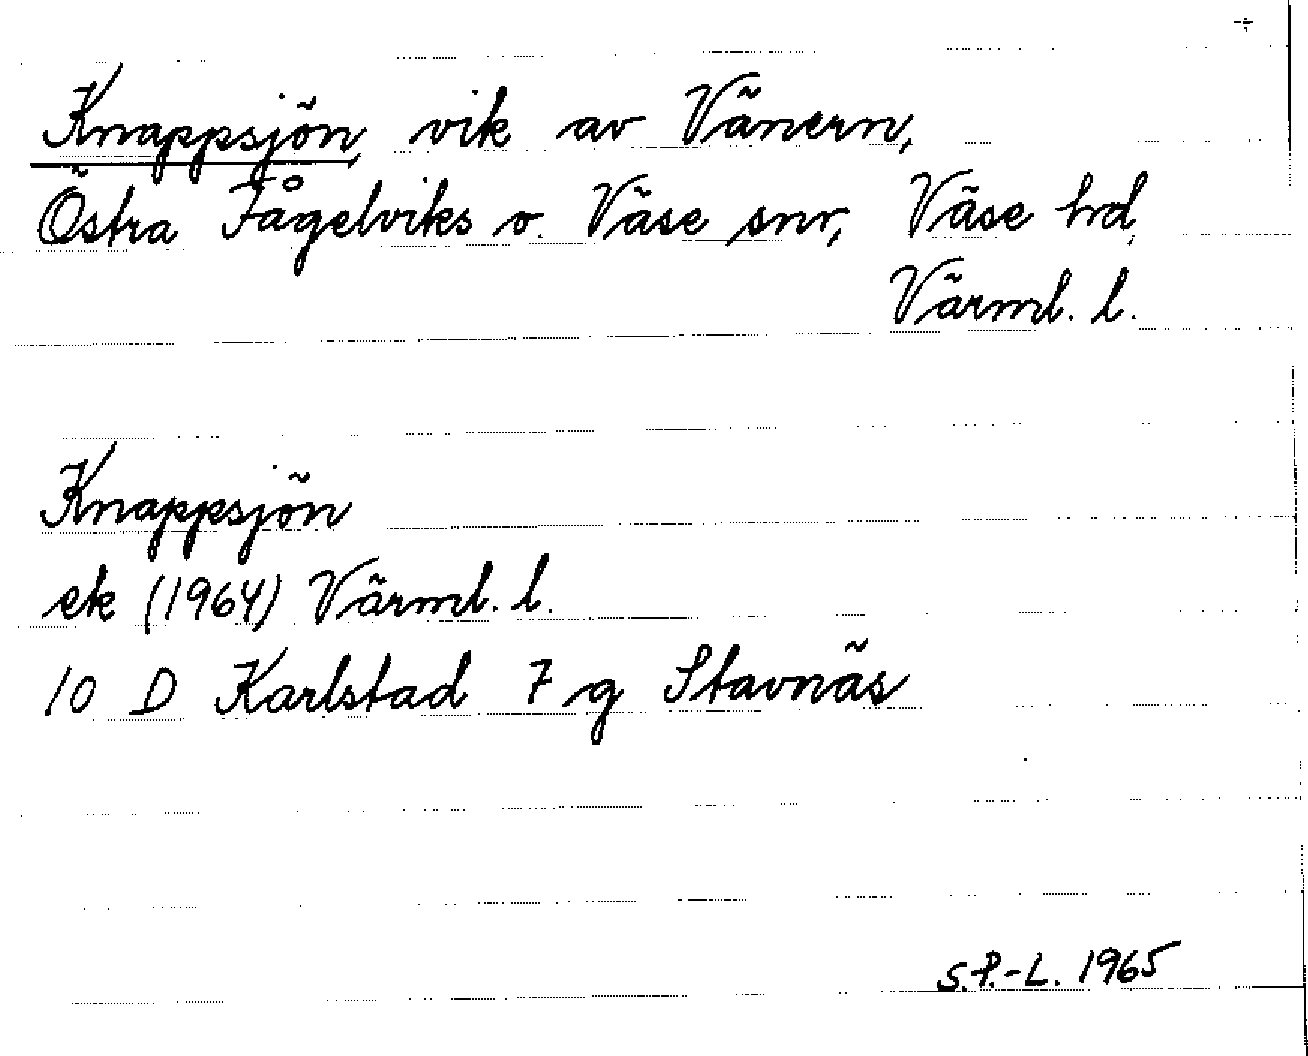 Knappsjön, vik av Vänern,
Östra Fågelviks o. Väse snr, Väse hd,
Värml. l.
Knappsjön
ek (1964) Värml. l.
10 D Karlstad 7 g Stavnäs
S.P.-L. 1965